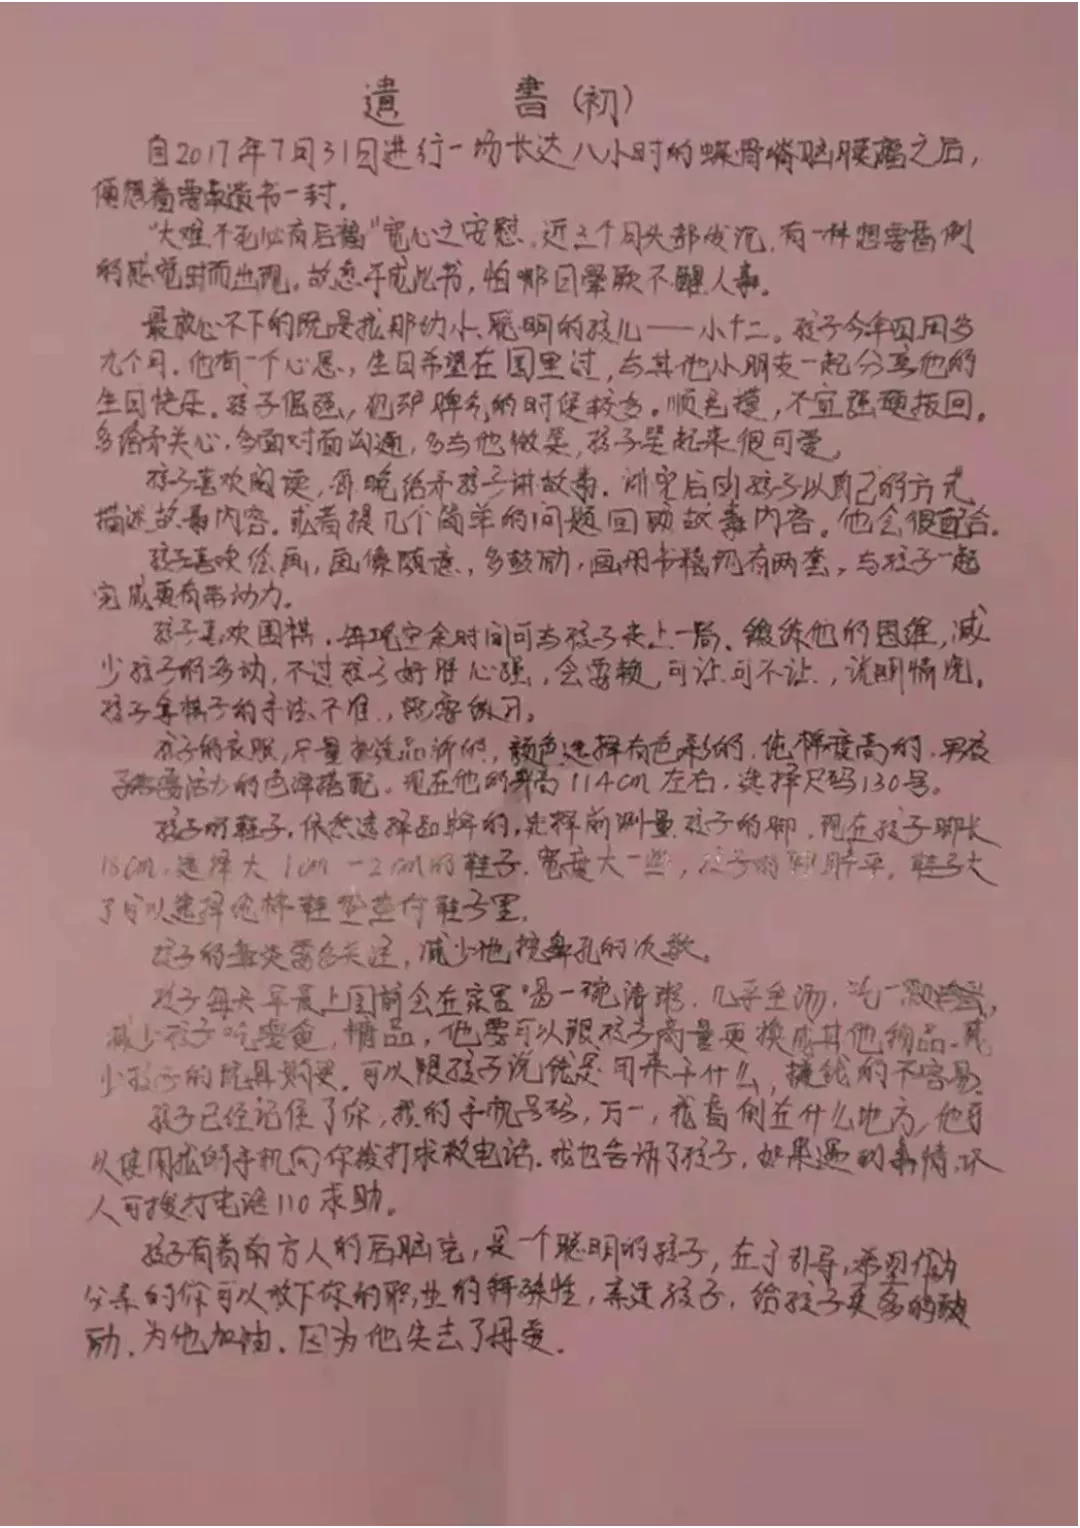 遺 書(初)
自2017年7月31日进行一场长达八小时的蝶骨嵴脑膜瘤之后,
便想着要来遗书一封。
"大难不死必有后福"宽心之安慰,近三个月头部发沉,有一种想要昏倒
的感觉时而出现。故急于成此书,怕哪日晕厥不醒人事。
最放心不下的既是我那幼小、聪明的孩儿——小十二。孩子今年四周多
九个月,他有一个心愿,生日希望在园里过,与其他小朋友一起分享他的
生日快乐。孩子倔强,犯驴脾气的时候较多。顺毛摸,不宜强硬拔回。
多给予关心,多面对面沟通,多与他微笑,孩子笑起来很可爱。
孩子喜欢阅读,每晚给予孩子讲故事。讲完后由孩子以自己的方式
描述故事内容。或者提几个简单的问题回助故事内容。他会很配合。
孩子喜欢绘画,画像随意,多鼓励,画用书稿仍有两套,与孩子一起
完成更有带动力。
孩子喜欢围棋,每晚空余时间可与孩子来上一局。锻练他的思维,减
少孩子的多动,不过孩子好胜心强,会耍赖,可让可不让,说明情况。
孩子拿棋子的手法不准,需练习。
孩子的衣服,尽量选品牌的,颜色选择有色彩的,纯棉度高的,男孩
子需要活力的色泽搭配。现在他的身高114cm左右,选择尺码130号。
孩子的鞋子,依然选择品牌的,选择前测量孩子的脚,现在孩子脚长
18cm,选择大1cm-2cm的鞋子,宽度大一些,孩子的脚胖平,鞋子大
了可以选择纯棉鞋垫垫在鞋子里。
孩子的鼻炎要多关注,减少他挖鼻孔的次数。
孩子每天早晨上园前会在家里喝一碗清粥,几乎全汤,吃一
减少孩子吃零食,精品,他要可以跟孩子商量更换成其他物品。减
少孩子的玩具购买,可以跟孩子说钱是用来干什么,挣钱的不容易。
孩子已经记住了你,我的手机号码,万一,我昏倒在什么地方,他可
以使用我的手机向你拨打求救电话。我也告诉了孩子,如果遇到事情、坏
人可拨打电话110求助。
孩子有着南方人的后脑壳,是一个聪明的孩子,在于引导,希望作为
父亲的你可以放下你的职业的特殊性,亲近孩子,给孩子更多的鼓
励,为他加油。因为他失去了母爱。